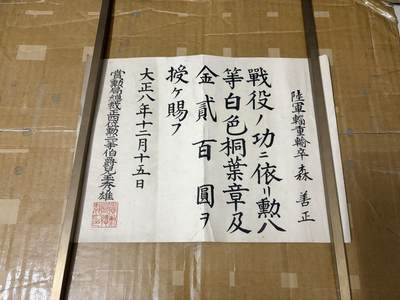 陸軍輜重輸卒 森 善正
戰役ノ功ニ依リ勲八
等白色桐葉章及
金貳百圓ヲ
授ケ賜フ
大正八年十二月十五日
賞勲局總裁正四位勲一等伯爵兒玉秀雄